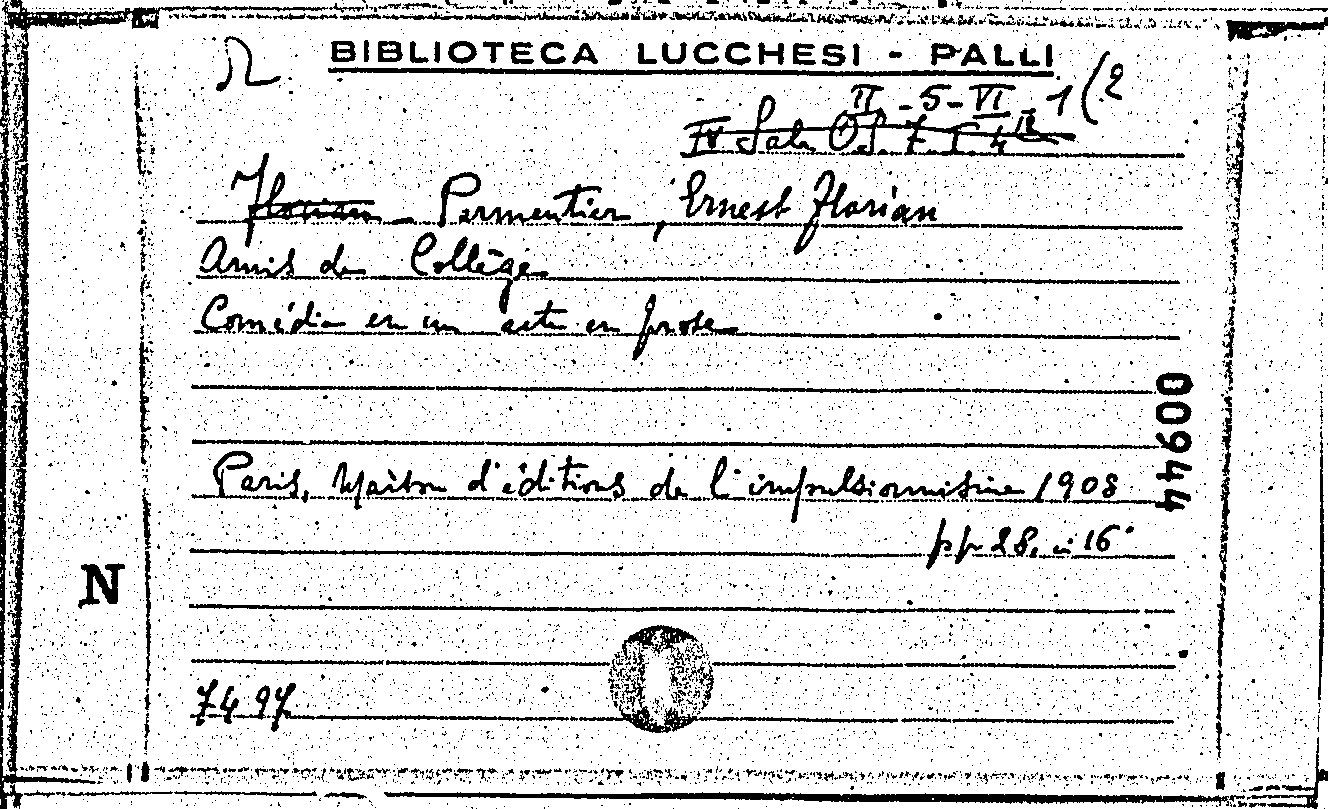 BIBLIOTECA LUCCHESI - PALLI
II - 5 - VI - 1 (2
Florian - Parmentier, Ernest Florian
Amis de Collège
Comédie en un acte en prose
Paris, Maison d'éditions de l'impulsionnisme 1908
pp 28, in 16°
00944
N
7497